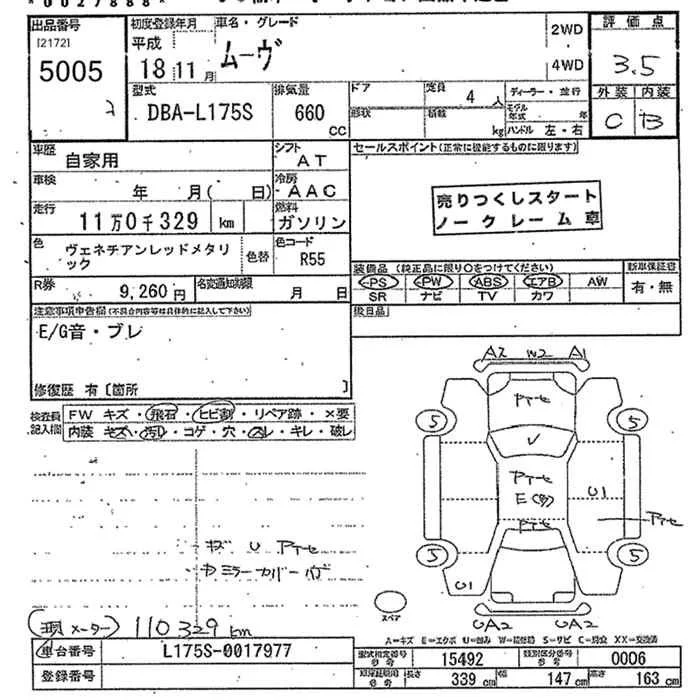 *0027888*
出品番号 初度登録年月 車名・グレード 2WD 評価点
[2172] 平成 ムーヴ
5005 18 11月 4WD 3.5
型式 排気量 ドア 定員 4人 ディーラー・並行 外装 内装
2 DBA-L175S 660 形状 積載 モデル年式 年 C B
CC kg ハンドル 左・右
車歴 自家用 シフト AT セールスポイント(正常に機能するものに限ります)
車検 年 月( 日) 冷房 AAC 売りつくしスタート
走行 11万0千329 km 燃料 ガソリン ノークレーム車
色 ヴェネチアンレッドメタリック 色替 色コード R55
装備品 (純正品に限り○をつけてください) 新車保証書
PS PW ABS エアB AW 有・無
SR ナビ TV カワ
R券 9,260円 名変通知期限 月 日
注意事項申告欄(不具合内容等は具体的に記入して下さい) 後日品
E/G音・ブレ
修復歴 有〔箇所 〕
検査員記入欄 FW キズ・飛石・ヒビ割・リペア跡・×要
内装 キズ・汚れ・コゲ・穴・スレ・キレ・破レ
A2 W2 A1
アセ
5 5
V
アセ
E(多) U1
アセ アセ
5 5
キズ U アセ
ミラーカバー
U1
スペア
UA2 UA2
現メーター 110329km
A=キズ E=エクボ U=凹み W=補修跡 S=サビ C=腐食 XX=交換済
車台番号 L175S-0017977 型式指定番号 参考 15492 類別区分番号 参考 0006
登録番号 長さ 339cm 幅 147cm 高さ 163cm